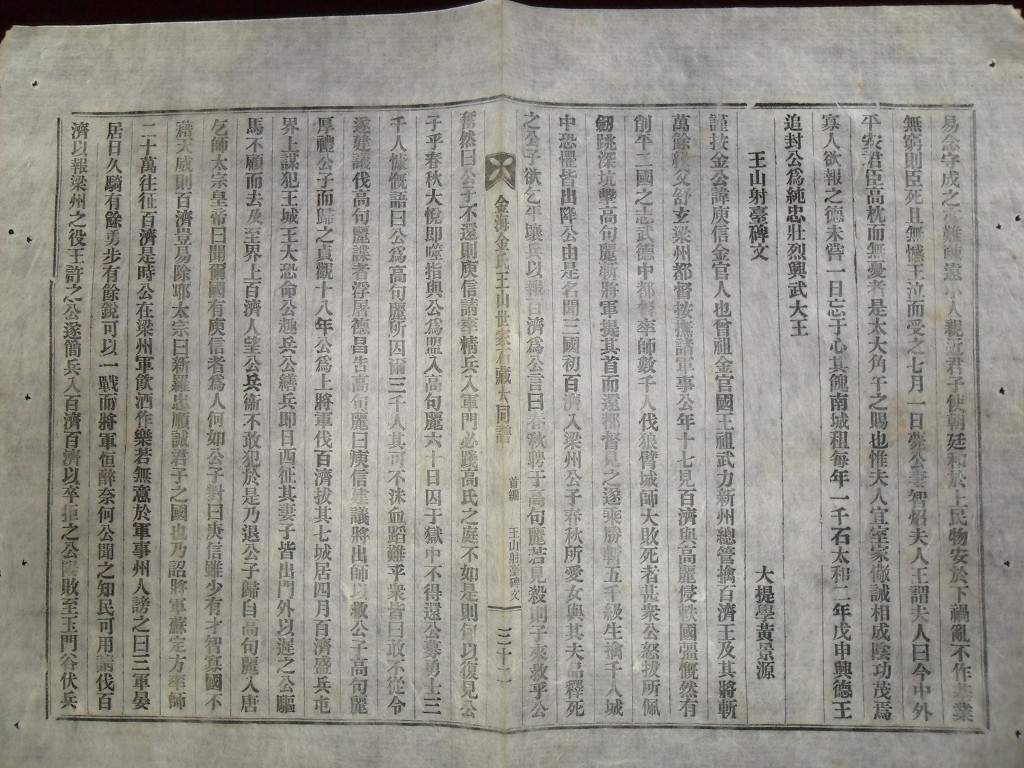 易念守成之不難疎遠小人親近君子使朝廷和於上民物安於下禍亂不作基業
無窮則臣死且無憾王泣而受之七月一日薨公妻智炤夫人王謂夫人曰今中外
平安君臣高枕而無憂者是太大角干之賜也惟夫人宜室家儆誡相成陰功茂焉
寡人欲報之德未嘗一日忘于心其餽南城租每年一千石太和二年戊申興德王
追封公爲純忠壯烈興武大王
王山射臺碑文
大提學黃景源
謹按金公諱庾信金官人也曾祖金官國王祖武力新州總管擒百濟王及其將斬
萬餘級父舒玄梁州都督按撫諸軍事公年十七見百濟與高麗侵軼國疆慨然有
削平二國之志武德中都督率師數千人伐狼臂城師大敗死者甚衆公怒拔所佩
劒跳深坑擊高句麗斬將軍提其首而還都督見之遂乘勝斬五千級生擒千人城
中恐懼皆出降公由是名聞三國初百濟入梁州公子春秋所愛女與其夫品釋死
之公子欲乞平壤兵以報百濟爲公言曰春秋聘于高句麗若見殺則子來救乎公
奮然曰公子不還則庾信請率精兵入軍門必踐高氏之庭不如是則何以復見公
子乎春秋大悅即噬指與公爲盟入高句麗六十日囚于獄中不得還公募勇士三
千人慷慨語曰公爲高句麗所囚爾三千人其可不沬血蹈難乎衆皆曰敢不從令
遂建議伐高句麗諜者浮屠德昌告高句麗曰庾信建議將出師以救公子高句麗
厚禮公子而歸之貞觀十八年公爲上將軍伐百濟拔其七城居四月百濟盛兵屯
界上謀犯王城王大恐命公趣兵公繕兵即日西征其妻子皆出門外以遲之公驅
馬不顧而去及至界上百濟人望公兵衛不敢犯於是乃退公子歸自高句麗入唐
乞師太宗皇帝曰聞爾國有庾信者爲人何如公子對曰庾信雖少有才智寡國不
藉天威則百濟豈易除耶太宗曰新羅忠順誠君子之國也乃詔將軍蘇定方率師
二十萬往征百濟是時公在梁州軍飲酒作樂若無意於軍事州人謗之曰三軍晏
居日久騎有餘勇步有餘銳可以一戰而將軍恒醉奈何公聞之知民可用請伐百
濟以報梁州之役王許之公遂簡兵入百濟百濟以卒拒之公陽敗至玉門谷伏兵
金海金氏王山世家石藏大同譜
首編
王山射臺碑文
三十一